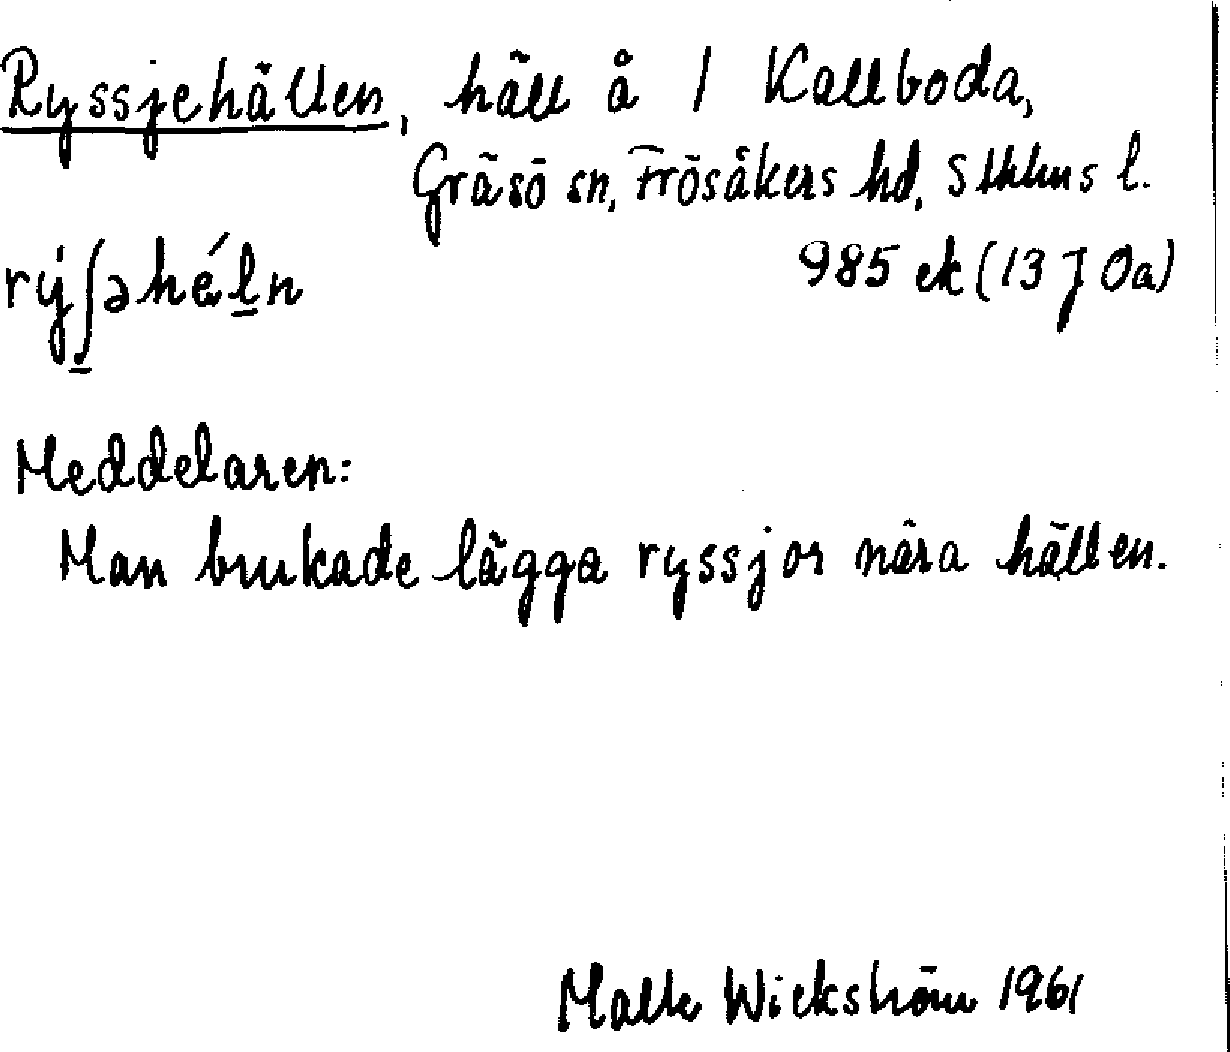 Ryssjehällen, häll å 1 Kallboda,
Gräsö sn, Frösåkers hd, Sthlms l.
rýʃ̲əhél̲n
985 ek (13 J 0a)
Meddelaren:
Man brukade lägga ryssjor nära hällen.
Malte Wickström 1961